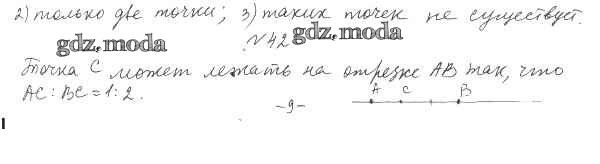 2) только две точки; 3) таких точек не существует.
gdz.moda №42 gdz.moda
Точка C может лежать на отрезке AB так, что
AC : BC = 1 : 2.
A C B
-9-